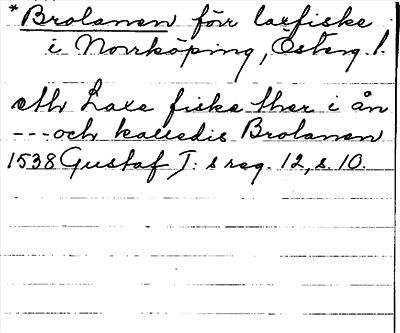 *Brolanen förr laxfiske
i Norrköping, Österg. l.
eth Laxe fiske ther i ån
--- och kalledis Brolanen
1538 Gustaf I:s reg. 12, s. 10.